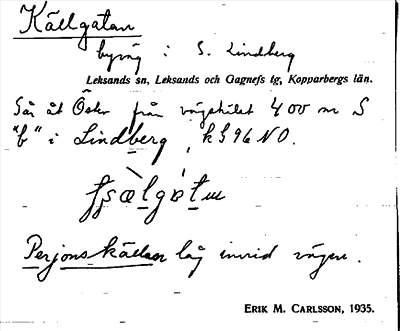 Källgatan
byväg i S. Lindberg
Leksands sn, Leksands och Gagnefs tg, Kopparbergs län.
Går åt Öster från vägskilet 400 m S
"b" i Lindberg, kS96NO.
Perjonskällan låg invid vägen.
ERIK M. CARLSSON, 1935.